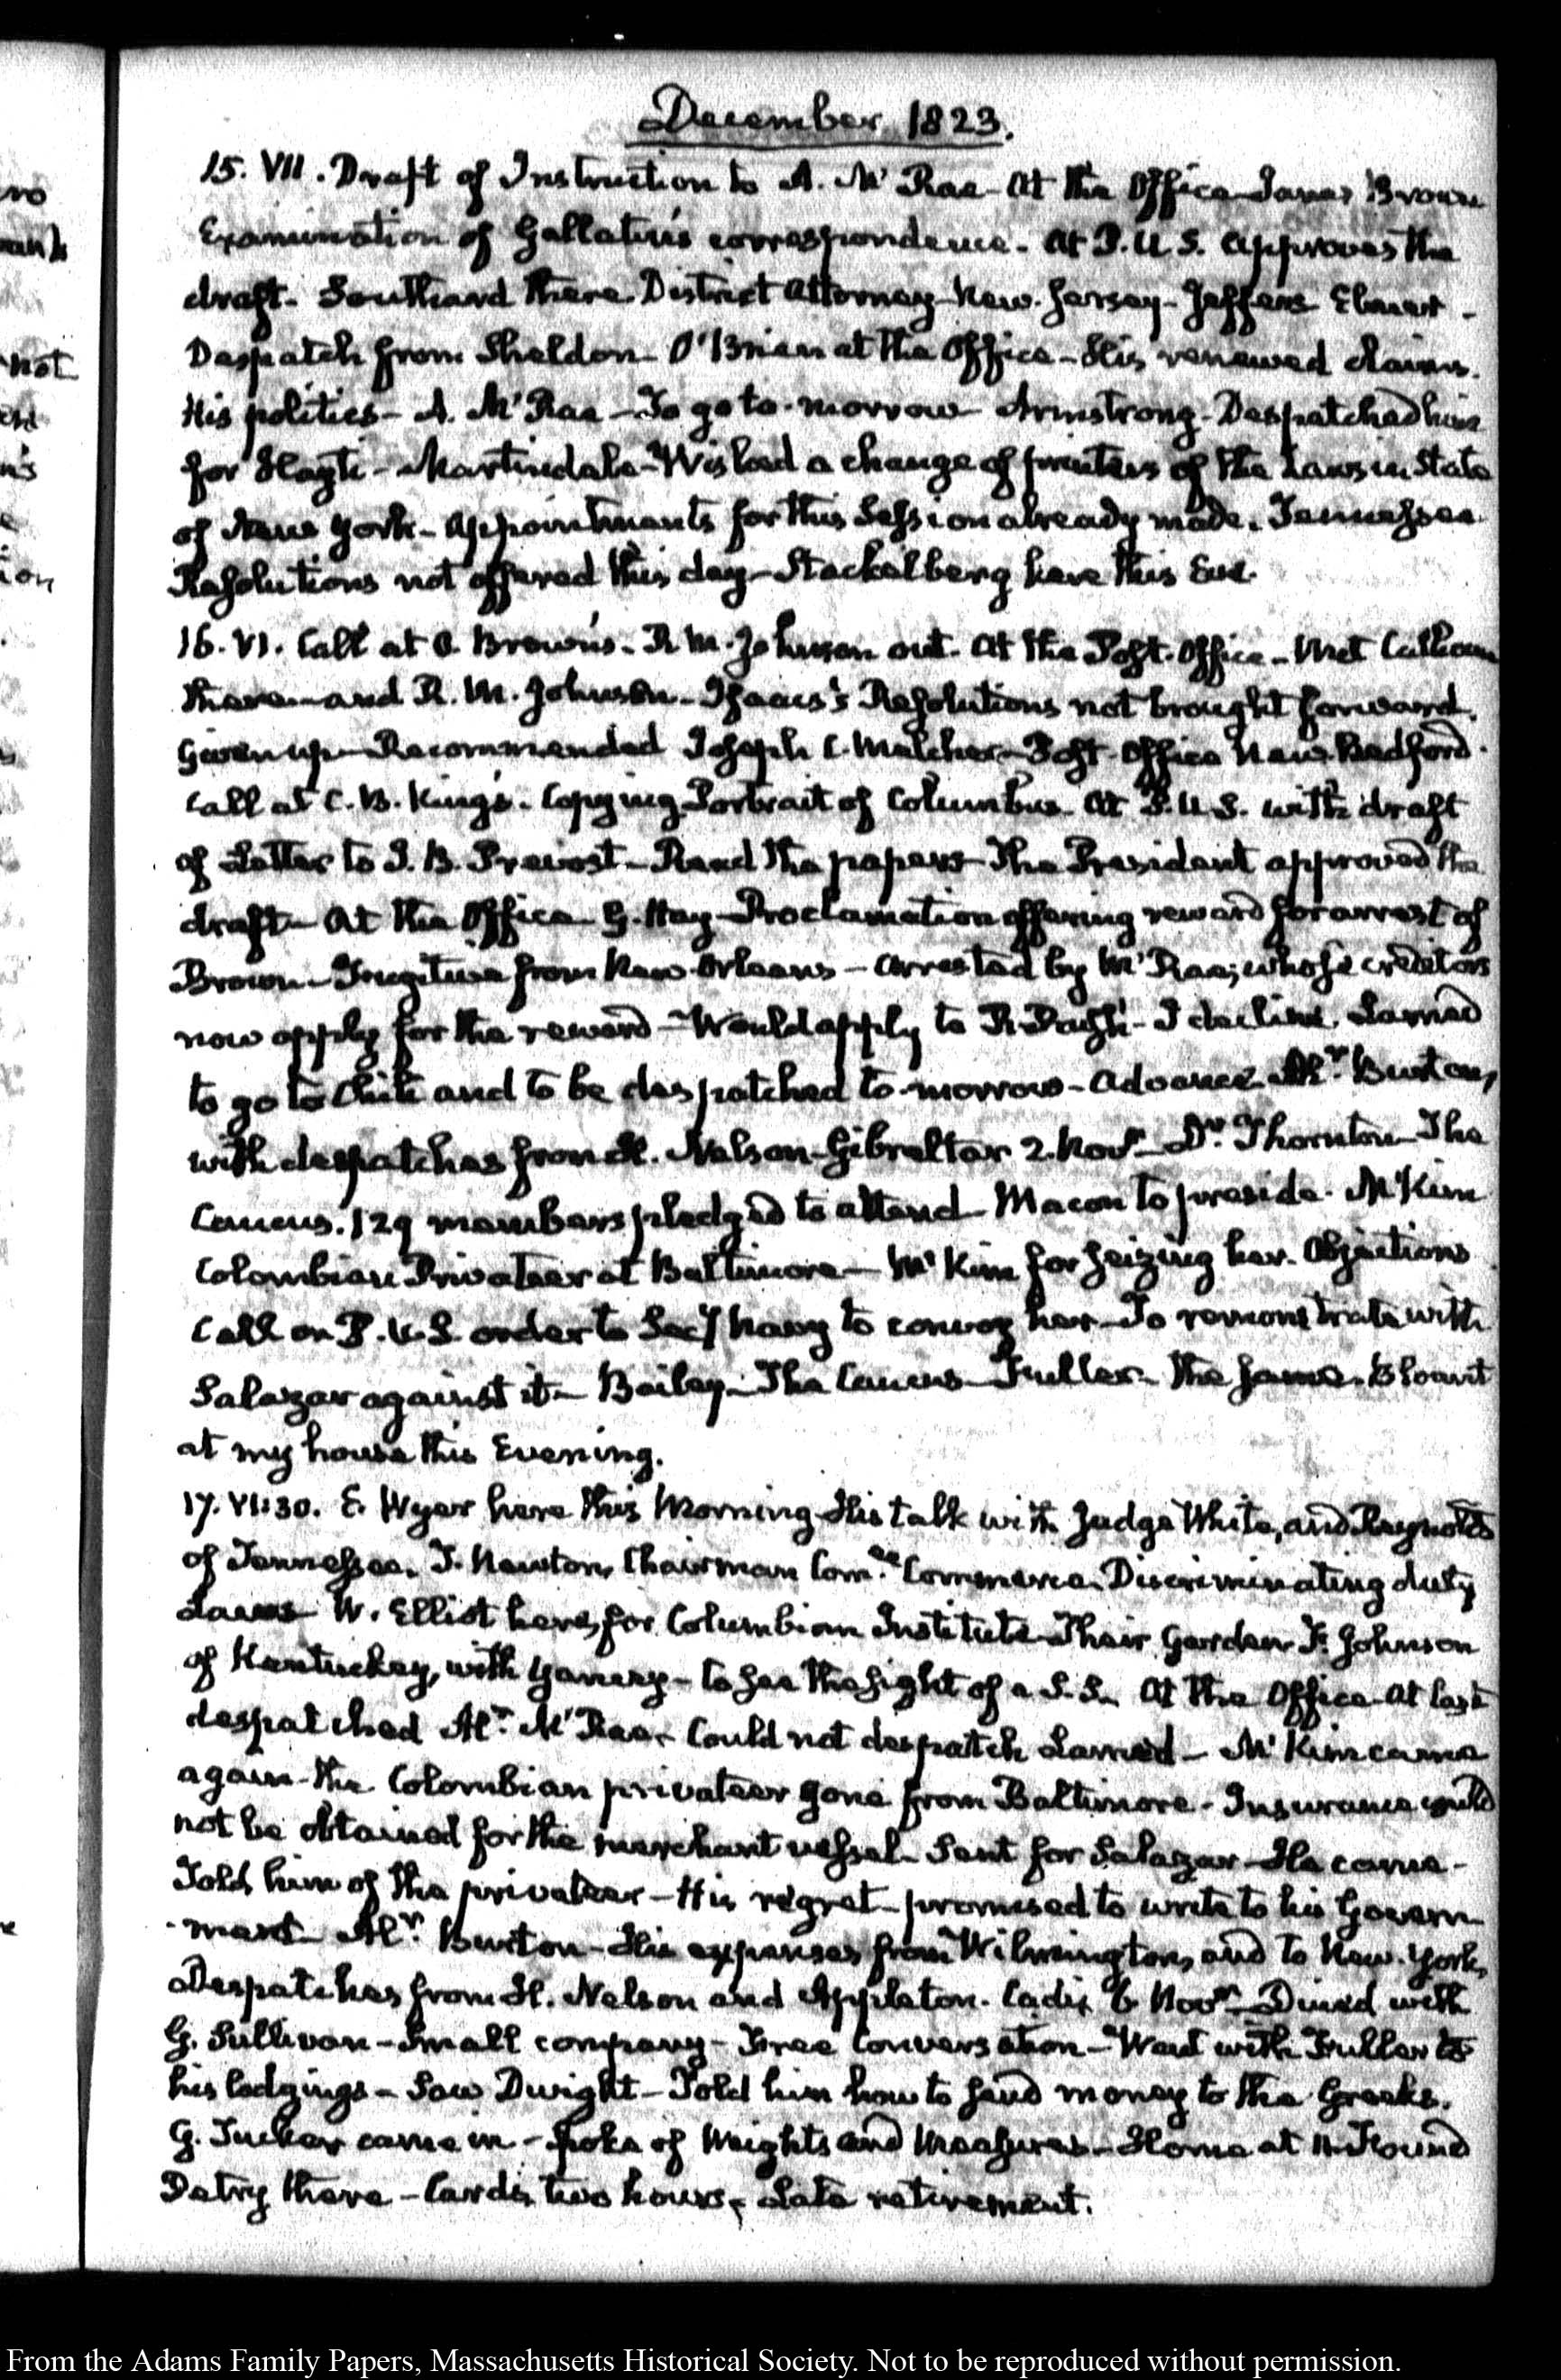 December 1823.
15. VII. Draft of Instruction to A. McRae. At the Office James Brown
Examination of Gallatin's correspondence. At P.U.S. approves the
draft. Southard there. District Attorney New-Jersey. Jeffers Elmer.
Despatch from Sheldon. O'Brien at the Office. His renewed claims.
His politics. A. McRae. To go to-morrow. Armstrong. Despatched him
for Hayti. Martindale. Wished a change of printers of the Laws in State
of New York. Appointments for this Session already made. Tennessee
Resolutions not offered this day. Stackelberg here this Eve.
16. VI. Call at Brown's. R. M. Johnson out. At the Post-Office. Met Calhoun
there and R. M. Johnson. Isaacs's Resolutions not brought forward.
Given up. Recommended Joseph C. Melcher. Post-Office New-Bedford.
Call at C. B. King's. Copying Portrait of Columbus. At P.U.S. with draft
of Letter to J. B. Prevost. Read the papers. The President approved the
draft. At the Office. G. Hay. Proclamation offering reward for arrest of
Brown. Fugitive from New-Orleans. Arrested by McRae; whose creditors
now apply for the reward. Would apply to R. Rush. I decline. Larned
to go to Chili and to be despatched to-morrow. Advance. Mr. Burton,
with despatches from H. Nelson. Gibraltar 2. Novr. Dr. Thornton. The
Caucus. 129 members pledged to attend. Macon to preside. McKim
Colombian Privateer at Baltimore. McKim for seizing her. Objections
Call on P.U.S. order to Secy Navy to convoy her. To remonstrate with
Salazar against it. Bailey. The Caucus. Fuller. The same. Blount
at my house this Evening.
17. VI:30. E. Wyer here this Morning. His talk with Judge White, and Reynolds
of Tennessee. T. Newton, Chairman Comee. Commerce. Discriminating duty
Laws. W. Elliot here, for Columbian Institute. Their Garden. F. Johnson
of Kentucky, with Yancey. to see the sight of a S.S. At the Office. At last
despatched Mr. McRae. Could not despatch Larned. McKim came
again. the Colombian privateer gone from Baltimore. Insurance could
not be obtained for the merchant vessel. Sent for Salazar. He came.
Told him of the privateer. His regret. promised to write to his Govern-
ment. Mr. Burton. His expenses from Wilmington, and to New-York,
Despatches from H. Nelson and Appleton. Cadiz 6 Novr. Dined with
G. Sullivan. Small company. Free Conversation. Went with Fuller to
his lodgings. Saw Dwight. Told him how to send money to the Greeks.
G. Tucker came in. spoke of Weights and Measures. Home at 11. Found
Petry there. Cards, two hours, Late retirement.
From the Adams Family Papers, Massachusetts Historical Society. Not to be reproduced without permission.